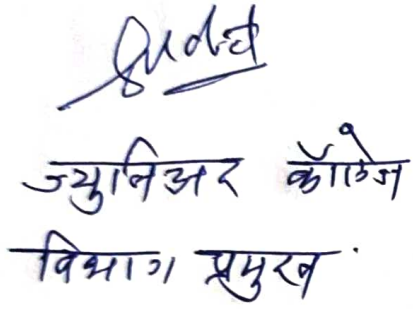 ज्युनिअर कॉलेज
विभाग प्रमुख